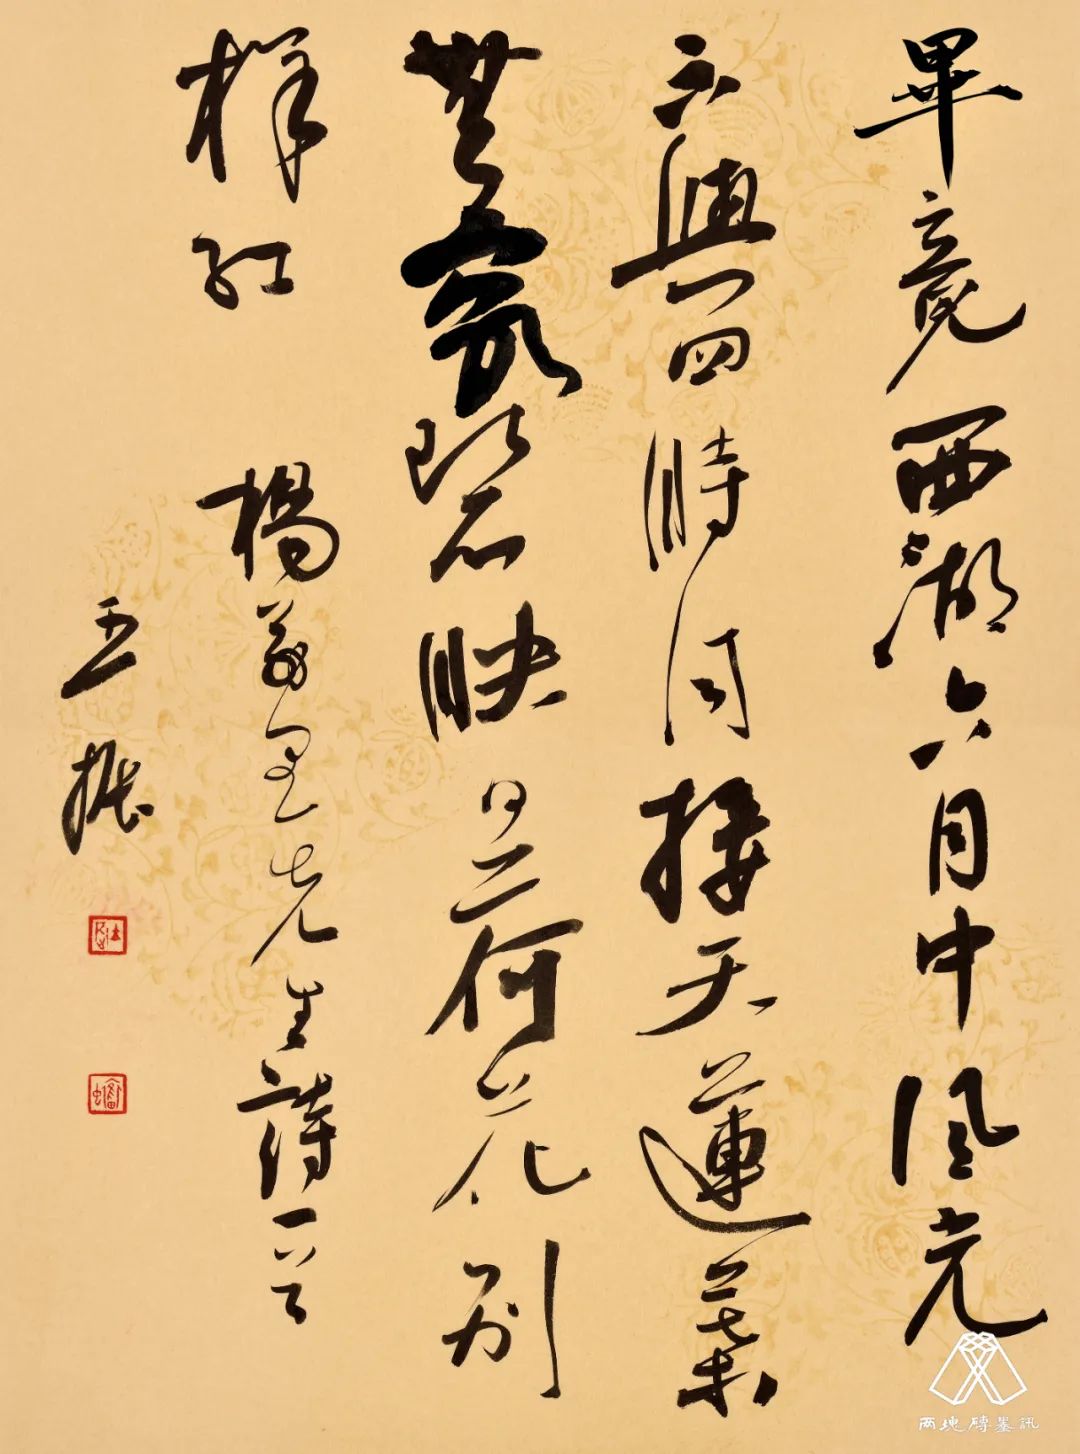 畢竟西湖六月中風光
不與四時同接天蓮葉
無窮碧映日荷花別
樣紅 楊萬里先生詩一首
王振
兩地磚墨訊